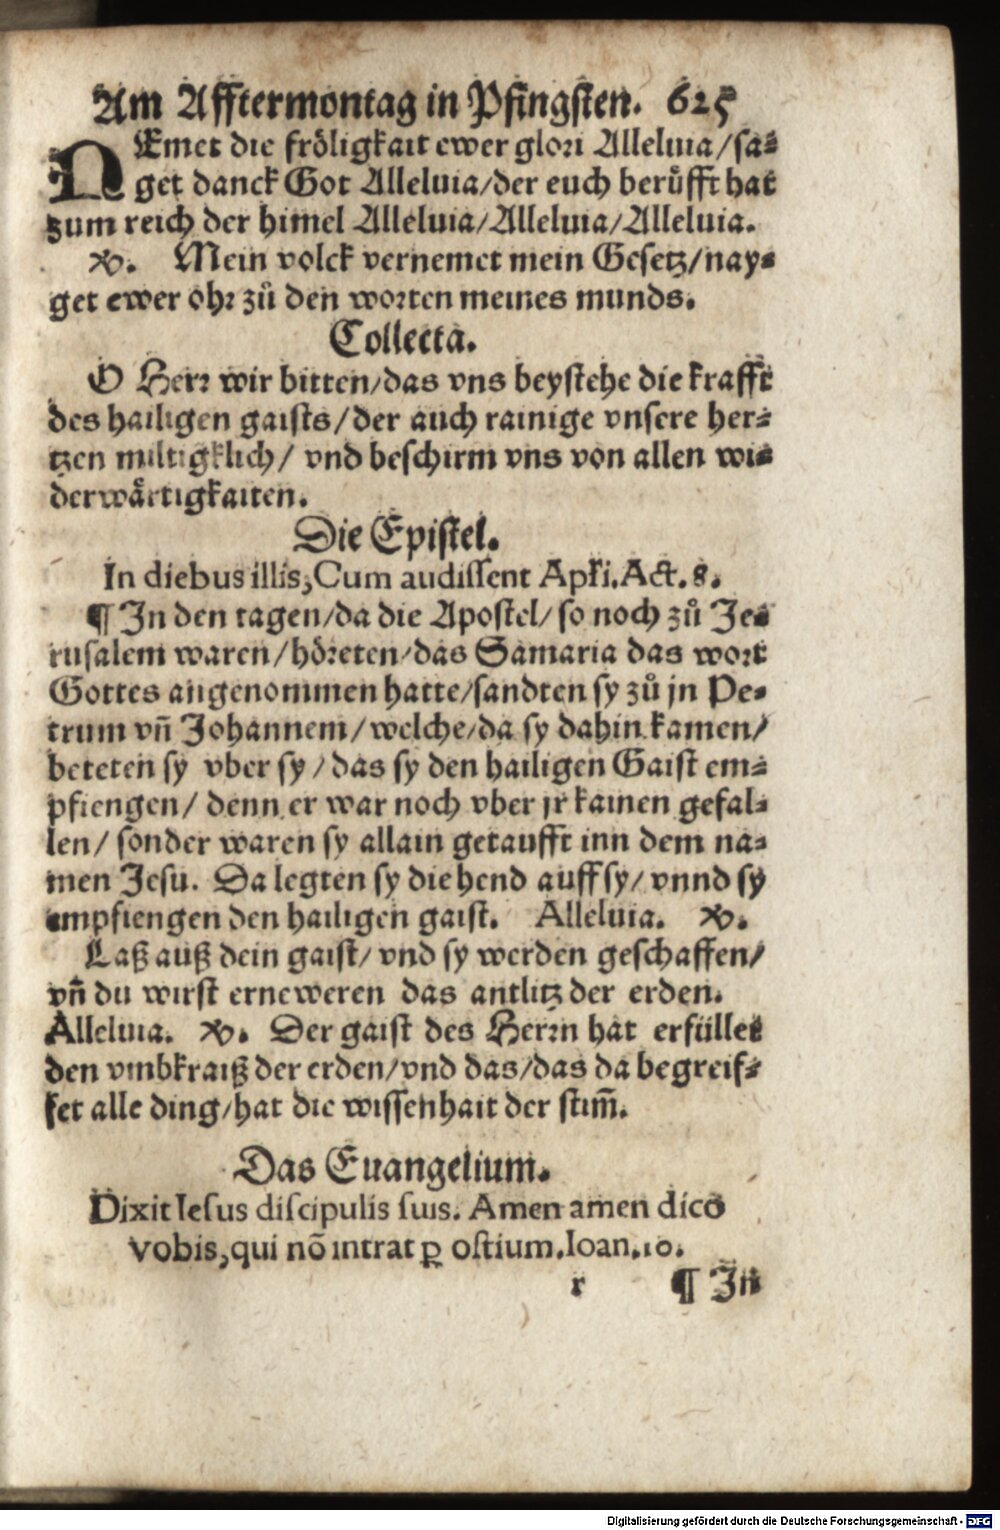 Am Affтermontag in Pfingsten. 625
NEmet die fröligkait ewer glori Alleluia/sa⸗
get danck Got Alleluia/der euch berůfft hat
zum reich der himel Alleluia/Alleluia/Alleluia.
℣. Mein volck vernemet mein Gesetz/nay⸗
get ewer ohr zů den worten meines munds.
Collecta.
O Herr wir bitten/das vns beystehe die krafft
des hailigen gaists/der auch rainige vnsere her⸗
tzen miltigklich/ vnd beschirm vns von allen wi⸗
derwärtigkaiten.
Die Epistel.
In diebus illis, Cum audissent Apl̄i. Act. 8.
¶ In den tagen/da die Apostel/so noch zů Je⸗
rusalem waren/höreten/das Samaria das wort
Gottes angenommen hatte/sandten sy zů jn Pe⸗
trum vñ Johannem/welche/da sy dahin kamen/
beteten sy vber sy/das sy den hailigen Gaist em⸗
pfiengen/ denn er war noch vber jr kainen gefal⸗
len/ sonder waren sy allain getaufft inn dem na⸗
men Jesu. Da legten sy die hend auff sy/ vnnd sy
empfiengen den hailigen gaist. Alleluia. ℣.
Laß auß dein gaist/ vnd sy werden geschaffen/
vñ du wirst erneweren das antlitz der erden.
Alleluia. ℣. Der gaist des Herrn hat erfüllet
den vmbkraiß der erden/vnd das/das da begreif⸗
fet alle ding/hat die wissenhait der stim̄.
Das Euangelium.
Dixit Iesus discipulis suis. Amen amen dico
vobis, qui nō intrat ꝑ ostium. Ioan. 10.
r ¶ In
Digitalisierung gefördert durch die Deutsche Forschungsgemeinschaft - DFG